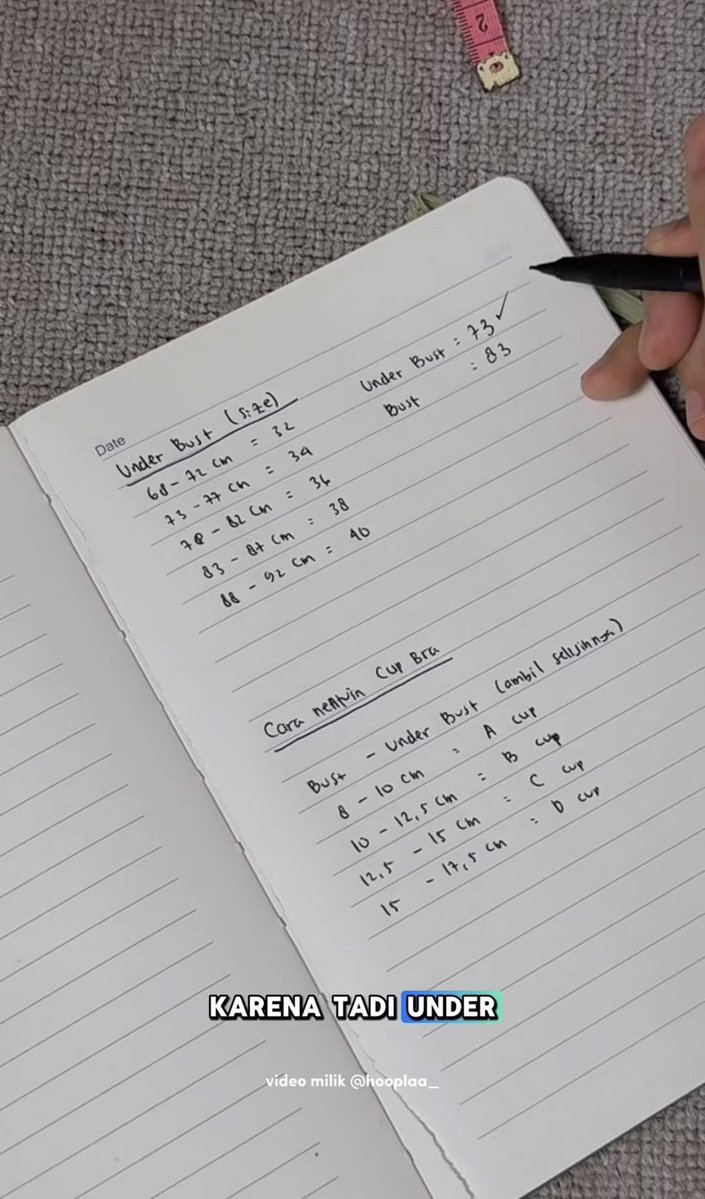 2
Date
Under Bust (size)
68 - 72 cm = 32
73 - 77 cm = 34
78 - 82 cm = 36
83 - 87 cm = 38
88 - 92 cm = 40
Under Bust = 73 ✓
Bust = 83
Cara nentuin Cup Bra
Bust - Under Bust (ambil selisihnya)
8 - 10 cm = A cup
10 - 12,5 cm = B cup
12,5 - 15 cm = C cup
15 - 17,5 cm = D cup
KARENA TADI UNDER
video milik @hooplaa_